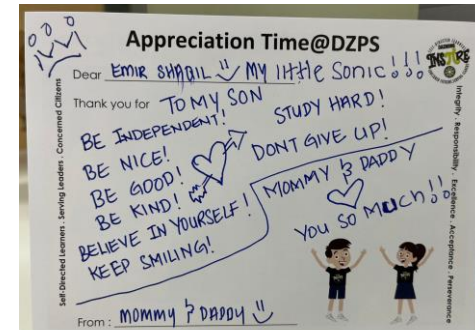 Appreciation Time@DZPS
INSPIRE
Dear EMIR SHAQIL MY little SONIC!!!
Thank you for TO MY SON
BE INDEPENDENT!
BE NICE!
BE GOOD!
BE KIND!
BELIEVE IN YOURSELF!
KEEP SMILING!
STUDY HARD!
DONT GIVE UP!
MOMMY & DADDY
YOU SO MUCH!!
From : MOMMY & DADDY
Self-Directed Learners . Serving Leaders . Concerned Citizens
Integrity . Responsibility . Excellence . Acceptance . Perseverance